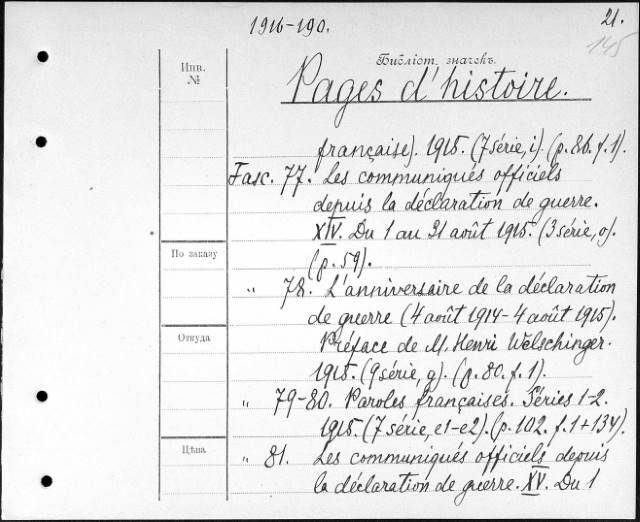 1916-190.
21.
145
Библіот. значекъ.
Инв.
№
Pages d'histoire.
française). 1915. (7 série, i). (p. 86. f. 1).
Fasc. 77. Les communiqués officiels
depuis la déclaration de guerre.
XIV. Du 1 au 31 août 1915. (3 série, o).
(p. 59).
По заказу
" 78. L'anniversaire de la déclaration
de guerre (4 août 1914-4 août 1915).
Откуда
Préface de M. Henri Welschinger.
1915. (9 série, g). (p. 80. f. 1).
" 79-80. Paroles françaises. Séries 1-2.
1915. (7 série, e1-e2). (p. 102. f. 1 + 134).
Цѣна
" 81. Les communiqués officiels depuis
la déclaration de guerre. XV. Du 1